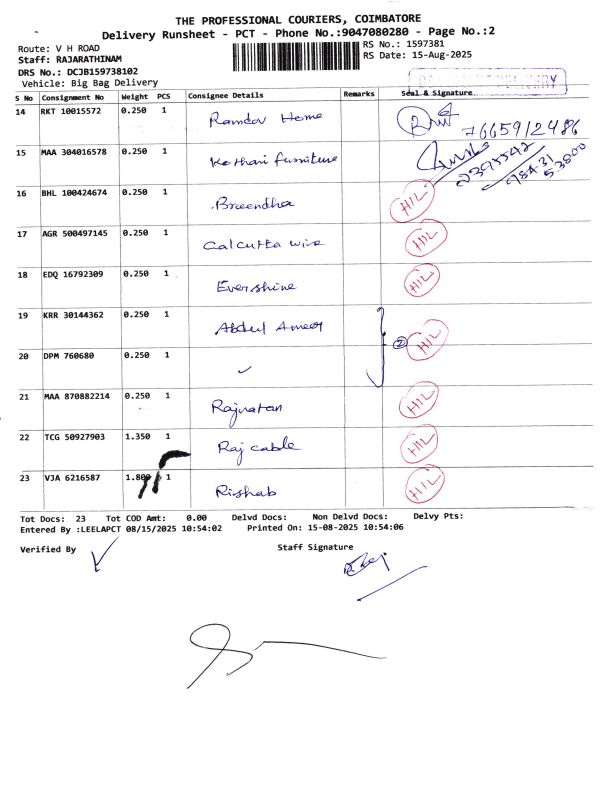 THE PROFESSIONAL COURIERS, COIMBATORE
Delivery Runsheet - PCT - Phone No.:9047080280 - Page No.:2
Route: V H ROAD
RS No.: 1597381
Staff: RAJARATHINAM
RS Date: 15-Aug-2025
DRS No.: DCJB159738102
Vehicle: Big Bag Delivery
S No Consignment No Weight PCS Consignee Details Remarks Seal & Signature
14 RKT 10015572 0.250 1 Ramdev Home
7665912486
15 MAA 304016578 0.250 1 Kothari furniture
16 BHL 100424674 0.250 1 Breendha HIL
17 AGR 500497145 0.250 1 Calcutta wire HIL
18 EDQ 16792309 0.250 1 Evershine HIL
19 KRR 30144362 0.250 1 Abdul Ameer ② HIL
20 DPM 760680 0.250 1
21 MAA 870882214 0.250 1 Rajratan HIL
22 TCG 50927903 1.350 1 Raj cable HIL
23 VJA 6216587 1.800 1 Rishab HIL
Tot Docs: 23 Tot COD Amt: 0.00 Delvd Docs: Non Delvd Docs: Delvy Pts:
Entered By :LEELAPCT 08/15/2025 10:54:02 Printed On: 15-08-2025 10:54:06
Verified By
Staff Signature